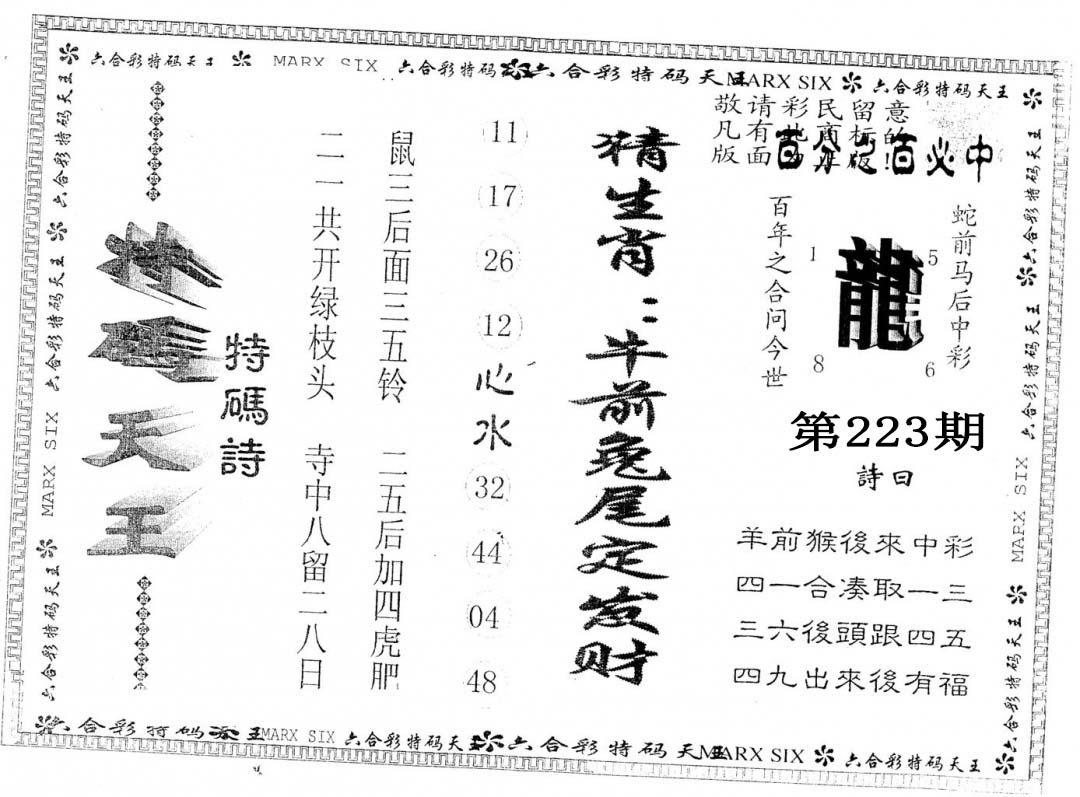 六合彩特码天王 MARX SIX 六合彩特码 六合彩特码天王 MARX SIX 六合彩特码天王
敬请彩民留意
凡有此商标的
版面为正版!
百分之百必中
蛇前马后中彩
龍
1
5
8
6
百年之合问今世
第223期
詩曰
羊前猴後來中彩
四一合凑取一三
三六後頭跟四五
四九出來後有福
猜生肖:牛前兔尾定发财
11
17
26
12
心水
32
44
04
48
鼠三后面三五铃 二五后加四虎肥
二一共开绿枝头 寺中八留二八日
特碼詩
特碼天王
六合彩特码天王 MARX SIX 六合彩特码天王 六合彩特码天王
六合彩特码天王 六合彩特码天王 MARX SIX 六合彩特码天王
六合彩特码天王 MARX SIX 六合彩特码天王 六合彩特码天王 MARX SIX 六合彩特码天王